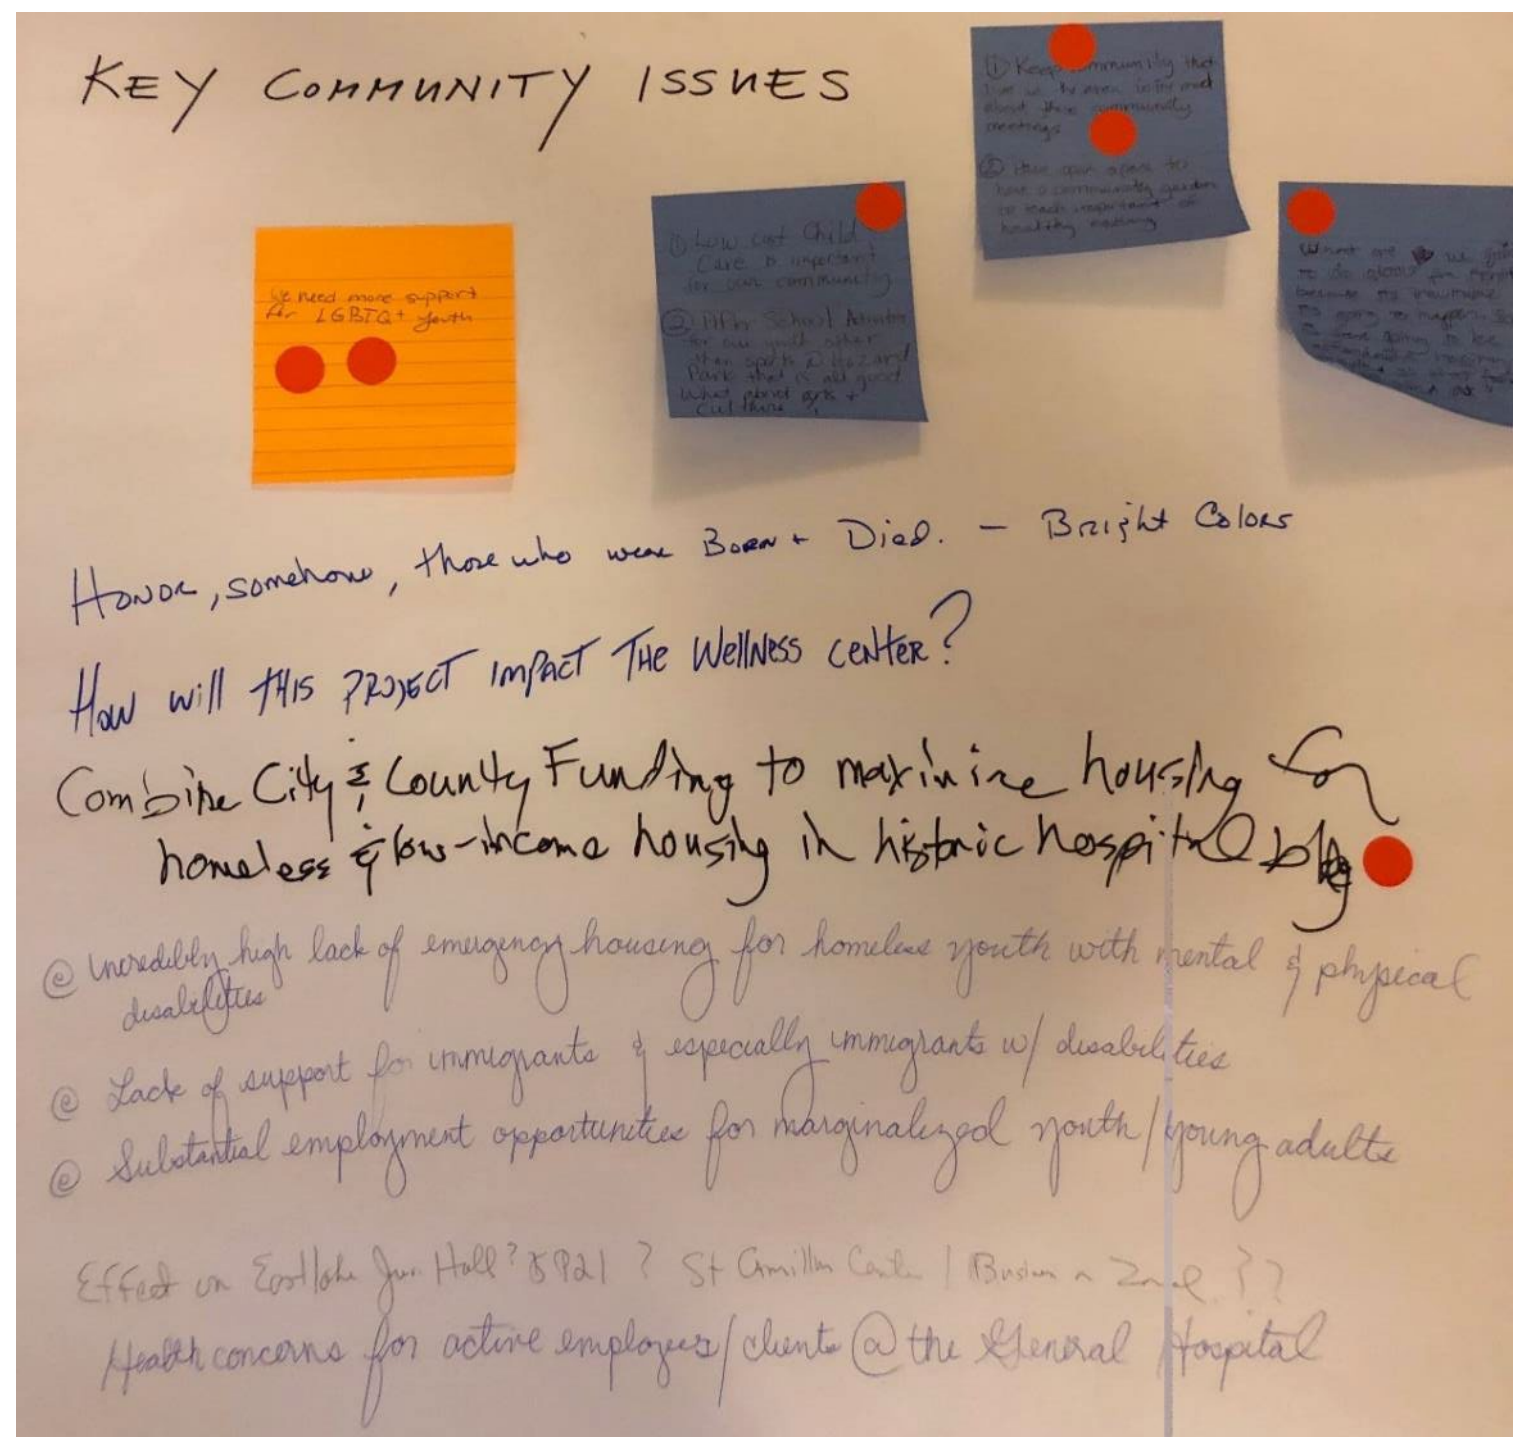 KEY COMMUNITY ISSUES
We need more support
for LGBTQ+ youth
① Low cost Child
Care is important
for our community
② After School Activities
for our youth other
then sports @ Hazard
Park that is all good
What about arts +
culture
① Keep community that
live in the area informed
about these community
meetings
② Have open space to
have a community garden
to teach important of
healthy eating
What are we going
to do about
because
going to happen. So
going to be
Honor, somehow, those who were Born + Died. - Bright Colors
How will this PROJECT IMPACT THE WellNess CENTER?
Combine City & County Funding to maximize housing for
homeless & low-income housing in historic hospital bldg
@ Incredibly high lack of emergency housing for homeless youth with mental & physical
disabilities
@ Lack of support for immigrants & especially immigrants w/ disabilities
@ Substantial employment opportunities for marginalized youth/young adults
Effect on Eastlake Juv. Hall? ? St Camillus Center / ??
Health concerns for active employees/clients @ the General Hospital